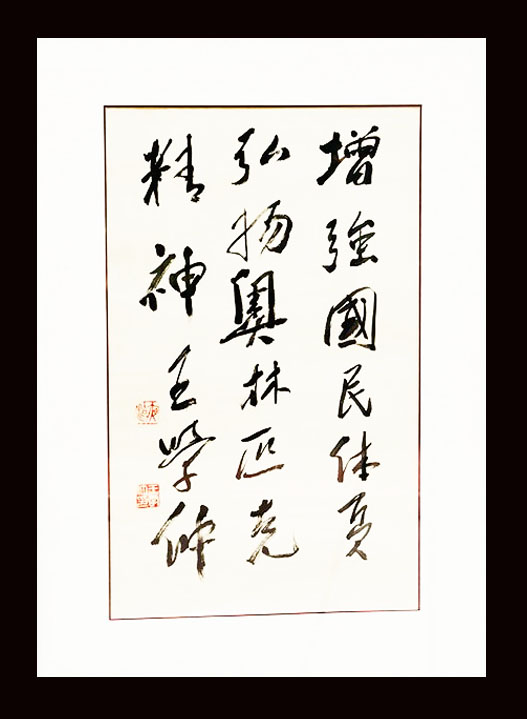 增強國民体质
弘扬奧林匹克
精神 王學仲